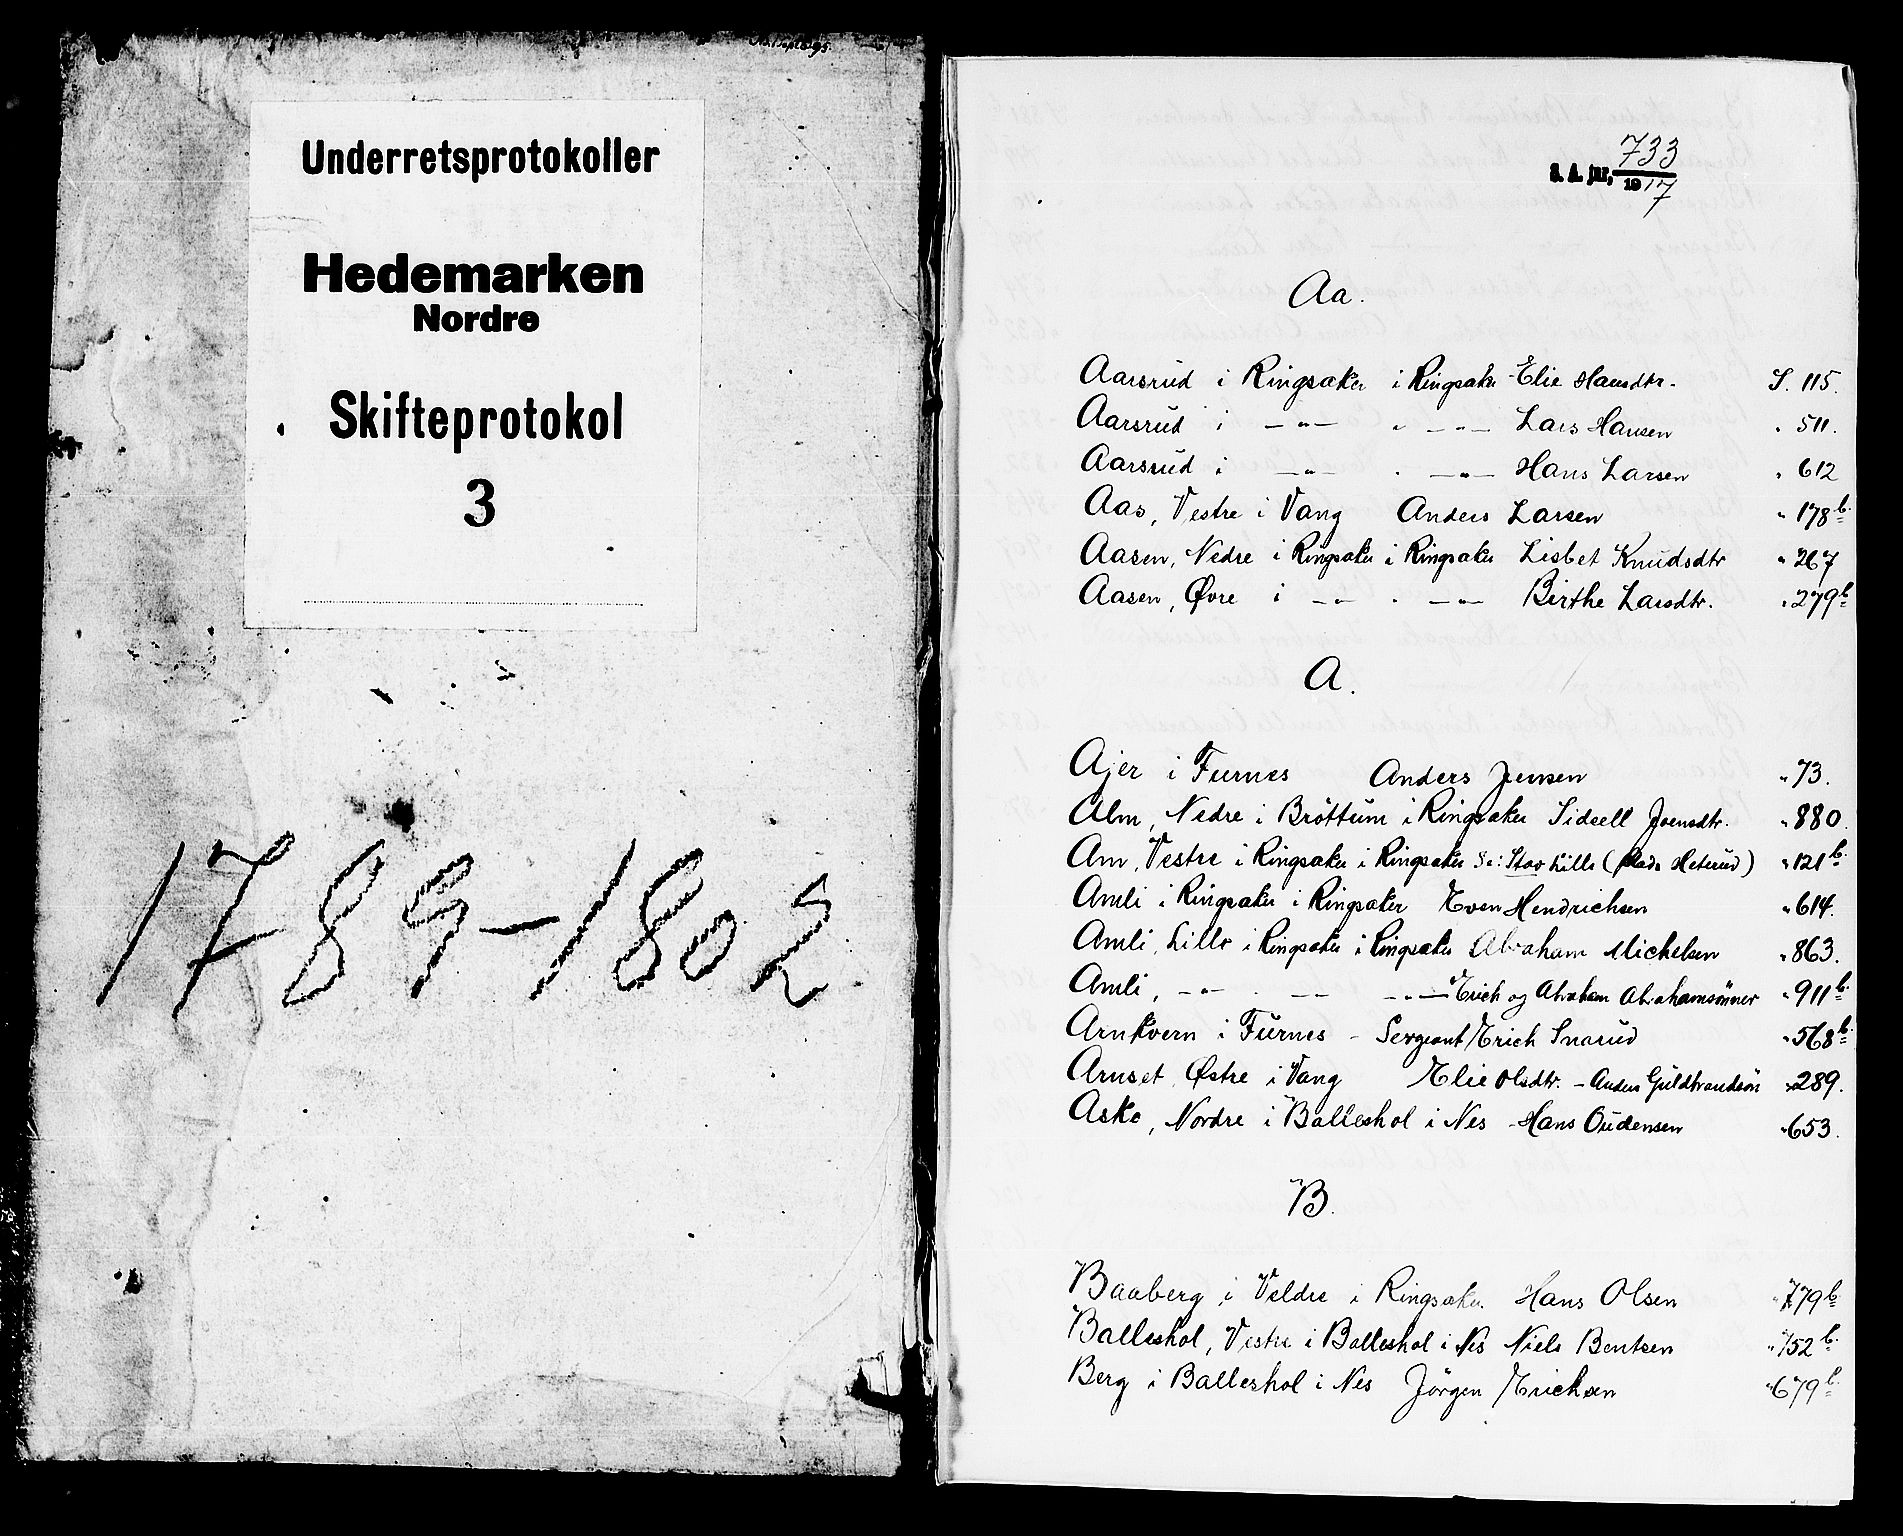 Underretsprotokoller
Hedemarken
Nordre
Skifteprotokol
3
1789-1802
S. A. jnr. 733
1917
Aa.
Aasrud i Ringsaker i Ringsaker Elie Hansdtr. S. 115.
Aarsrud i —"— " —"— Lars Hansen " 511.
Aarsrud i —"— " —"— Hans Larsen " 612
Aas, Vestre i Vang Anders Larsen " 178b.
Aasen, Nedre i Ringsaker i Ringsaker Lisbet Knudsdtr " 267
Aasen, Øvre i —"— " —"— Birthe Larsdtr. " 279b
A.
Ajer i Furnes Anders Jensen " 73.
Alm, Nedre i Bröttum i Ringsaker Sidsell Joensdtr. " 880.
Am, Vestre i Ringsaker i Ringsaker Se: Stav Lille (Mads Heterud) " 121b.
Amli i Ringsaker i Ringsaker Even Hendrichsen " 614.
Amli, Lille i Ringsaker i Ringsaker Abraham Michelsen " 863.
Amli, —"— " —"— —"— Erich og Abraham Abrahamsönner " 911b.
Arnkvern i Furnes - Sergeant Erich Snarud " 568b.
Arnset, Østre i Vang Elie Olsdtr. - Anders Guldbrandsön " 289.
Aske, Nordre i Balleshol i Nes - Hans Oudensen " 653.
B.
Baaberg i Veldre i Ringsaker. Hans Olsen " 779b
Balleshol, Vestre i Balleshol i Nes Niels Bentsen " 752b.
Berg i Balleshol i Nes Jörgen Erichsen " 679b.